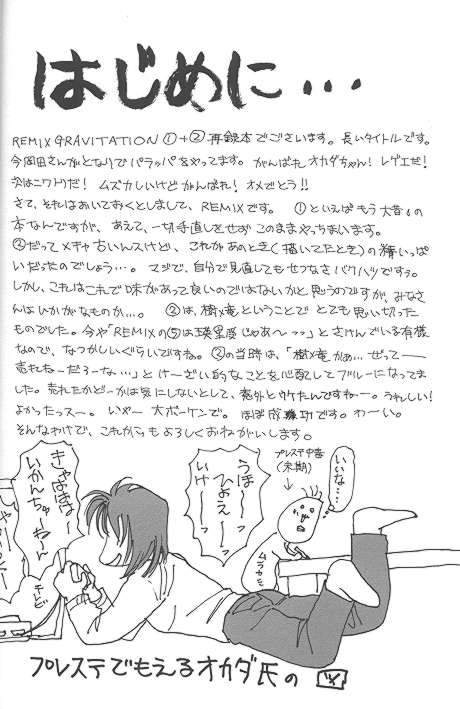 はじめに...
REMIX GRAVITATION ①+② 再録本でございます。長いタイトルです。
今岡田さんがとなりでパラッパをやってます。がんばれオカダちゃん! レゲエだ!
次はニワトリだ! ムズカしいけどがんばれ! オメでとう!!
さて、それはおいておくとしまして、REMIXです。 ①といえばもう大昔の
本なんですが、あえて、一切手直しをせず このままやっちまいます。
②だって メチャ古いんスけど、これがあのとき(描いてたとき)の精いっぱ
いだったのでしょう...。マジで、自分で見直してもせつなさバクハツですっ。
しかし、これはこれで味があって良いのではないかと思うのですが、みなさ
んはいかがなものか...。 ②は、樹×竜ということで とても思い切った
ものでした。今や「REMIXの⑤は瑛里座じゃあ〜っっ」とさけんでいる有様
なので、なつかしいぐらいですね。②の当時は、「樹×竜かぁ...ぜってーー
売れねーだろーな...」とけーざい的なことを心配してブルーになってま
した。売れたかどーかは気にしないとして、意外とウケたんですねー。うれしい!
よかったスー。いやー 大ボーケンで。ほぼ成功です。わーい。
そんなわけで、これからもよろしくおねがいします。
きゃあああ
いかんちゃーわん
うほ〜〜っ
ひょえーっ
いけーっ
プレステ中毒
(末期)
いいな...
ムラカミ
テレビ
プレステでもえるオカダ氏の図